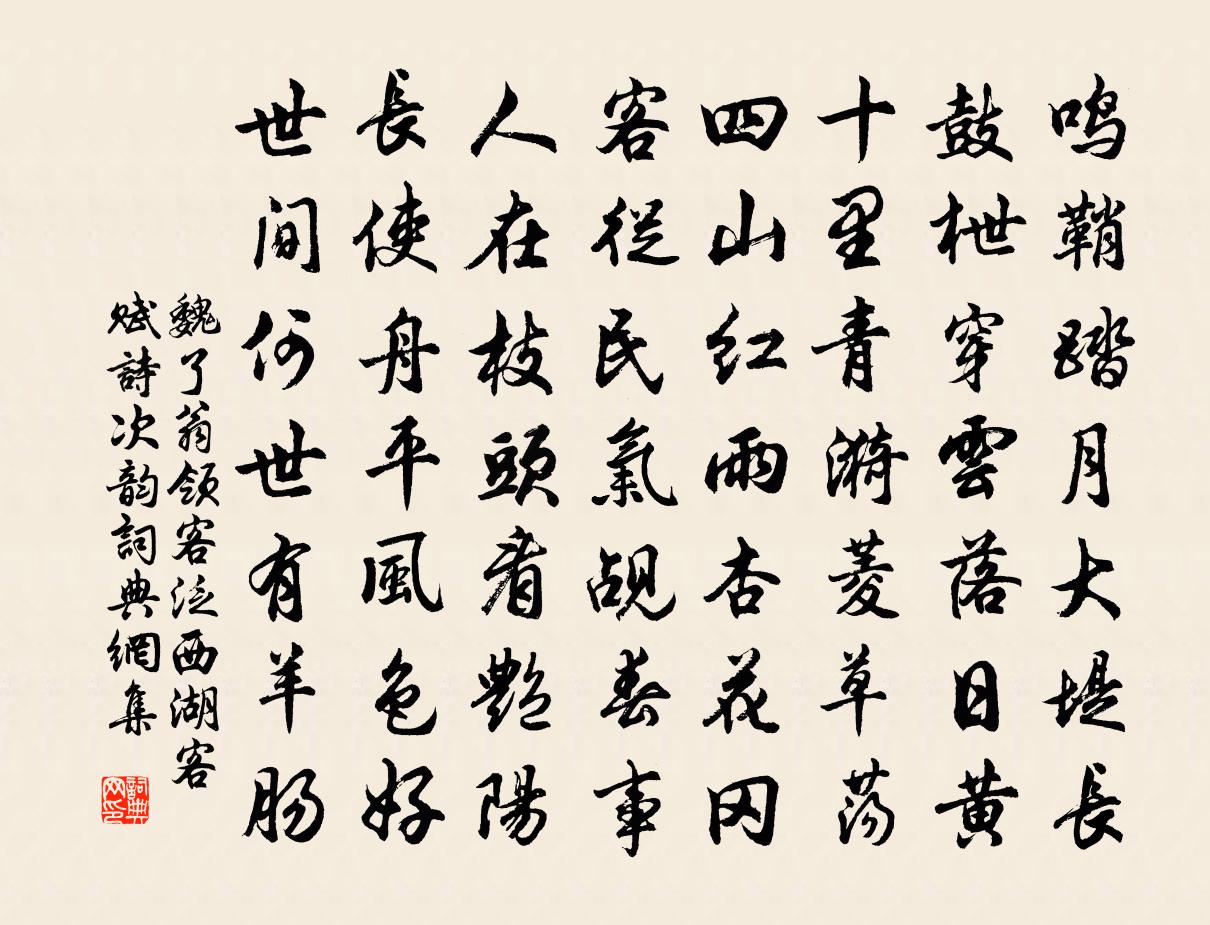 鳴鞘踏月大堤長
鼓枻穿雲落日黃
十里青漪菱草蕩
四山红雨杏花冈
客從民氣觇春事
人在枝頭看艷陽
長使舟平風色好
世间何世有羊肠
魏了翁領客泛西湖客
赋詩次韵詞典網集
詞典网印